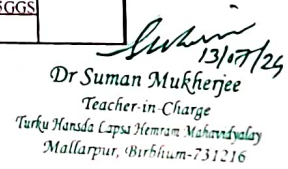 5GGS
13/07/24
Dr Suman Mukherjee
Teacher-in-Charge
Turku Hansda Lapsa Hemram Mahavidyalay
Mallarpur, Birbhum-731216